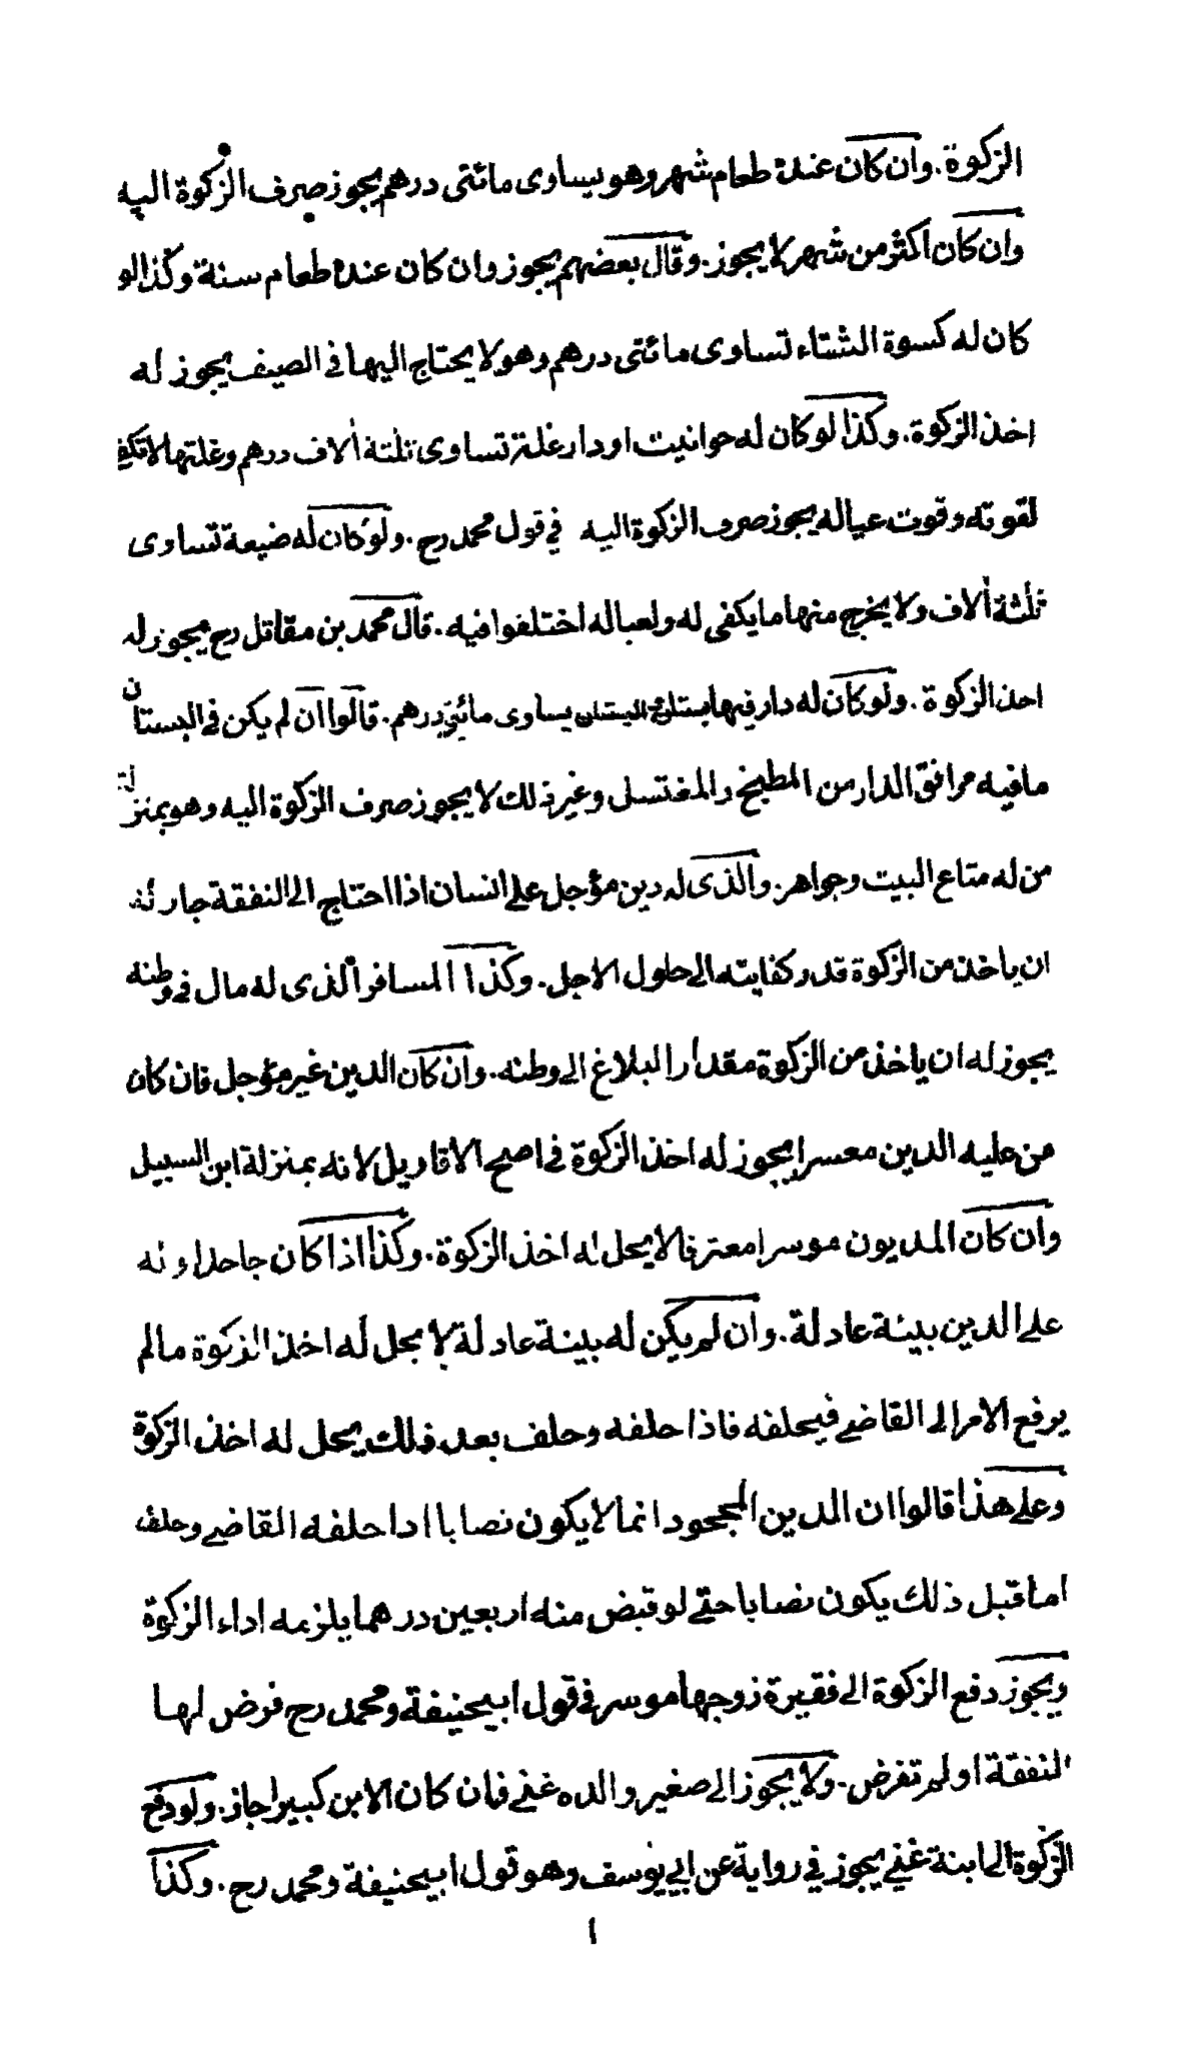 الزكوة. وان كان عنده طعام شهر وهو يساوى مائتى درهم يجوز صرف الزكوة اليه
وان كان اكثر من شهر لا يجوز. وقال بعضهم يجوز وان كان عنده طعام سنة وكذا لو
كان له كسوة الشتاء تساوى مائتى درهم وهو لا يحتاج اليها فى الصيف يجوز له
اخذ الزكوة. وكذا لو كان له حوانيت او دار غلة تساوى ثلثة ألاف درهم وغلتها لا تكفى
لقوته وقوت عياله يجوز صرف الزكوة اليه فى قول محمد رح. ولو كان له ضيعة تساوى
ثلثة ألاف ولا يخرج منها ما يكفى له ولعياله اختلفوا فيه. قال محمد بن مقاتل رح يجوز له
اخذ الزكوة. ولو كان له دار فيها بستان البستان يساوى مائتى درهم. قالوا ان لم يكن فى البستان
ما فيه مرافق الدار من المطبخ والمغتسل وغير ذلك لا يجوز صرف الزكوة اليه وهو بمنزلة
من له متاع البيت وجواهر. والذى له دين مؤجل على انسان اذا احتاج الى النفقة جاز له
ان ياخذ من الزكوة قدر كفايته الى حلول الاجل. وكذا المسافر الذى له مال فى وطنه
يجوز له ان ياخذ من الزكوة مقدار البلاغ الى وطنه. وان كان الدين غير مؤجل فان كان
من عليه الدين معسرا يجوز له اخذ الزكوة فى اصح الاقاويل لانه بمنزلة ابن السبيل
وان كان المديون موسرا معترفا لا يحل له اخذ الزكوة. وكذا اذا كان جاحدا وله
على الدين بينة عادلة. وان لم يكن له بينة عادلة لا يحل له اخذ الزكوة مالم
يرفع الامر الى القاضى فيحلفه فاذا حلفه وحلف بعد ذلك يحل له اخذ الزكوة
وعلى هذا قالوا ان الدين المجحود انما لا يكون نصابا اذا حلفه القاضى وحلف
اما قبل ذلك يكون نصابا حتى لو قبض منه اربعين درهما يلزمه اداء الزكوة
ويجوز دفع الزكوة الى فقيرة زوجها موسر فى قول ابيحنيفة ومحمد رح فرض لها
النفقة او لم تفرض. ولا يجوز الى صغير والده غنى فان كان الابن كبيرا جاز. ولو دفع
الزكوة الى ابنة غنى يجوز فى رواية عن ابى يوسف وهو قول ابيحنيفة ومحمد رح. وكذا
ا